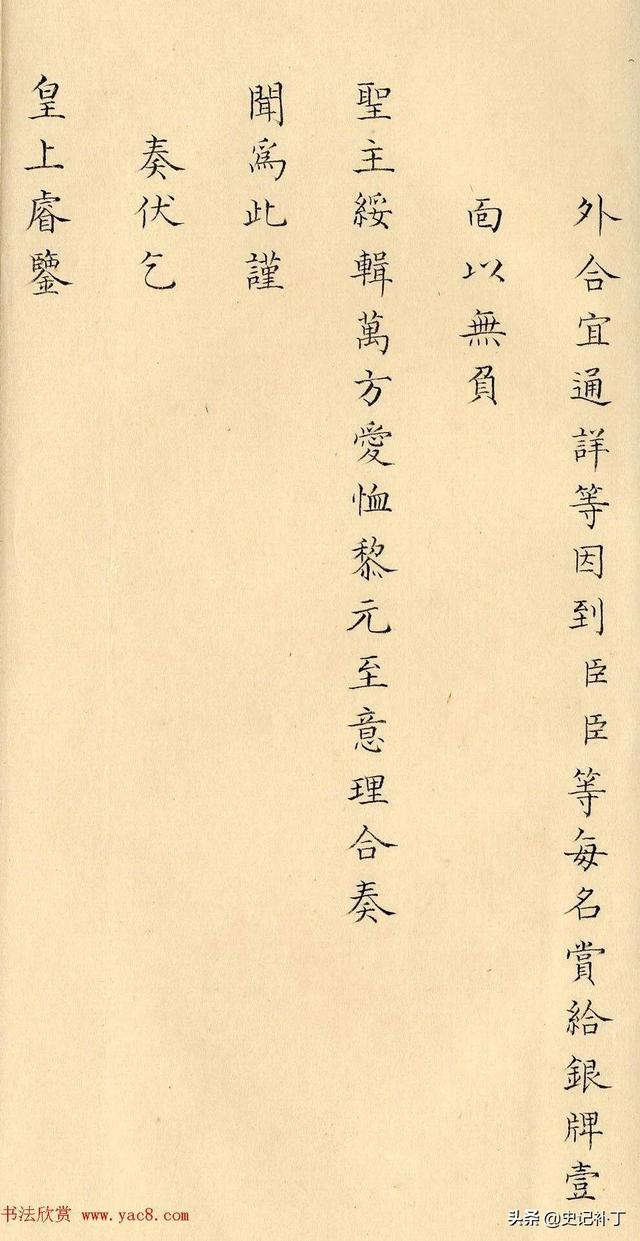 外合宜通詳等因到臣臣等每名賞給銀牌壹
面以無負
聖主綏輯萬方愛恤黎元至意理合奏
聞爲此謹
奏伏乞
皇上睿鑒
书法欣赏 www.yac8.com
头条 @史记补丁